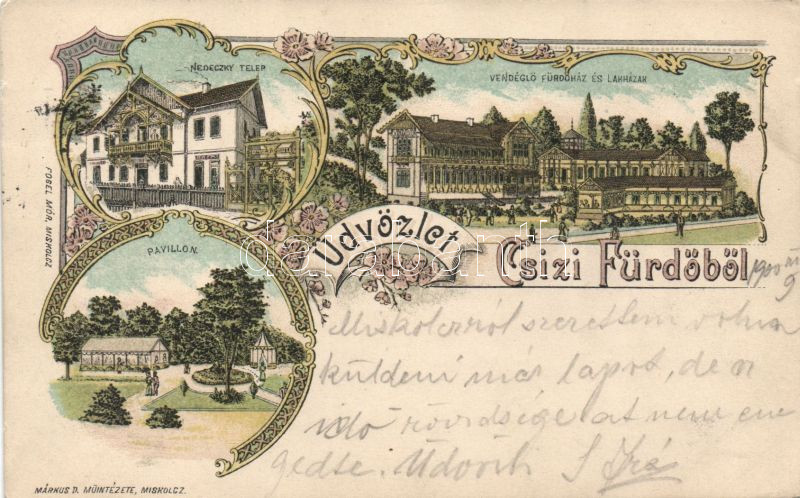 NEDECZKY TELEP
VENDÉGLŐ FÜRDŐHÁZ ÉS LAKHÁZAK
FOGEL MÓR, MISKOLCZ
PAVILLON.
Üdvözlet
Csizi Fürdőből
1900
9
Miskolczról szerettem volna
küldeni már lapot, de a
idő rövidsége azt nem en
gedte. Üdvözli
MÁRKUS D. MŰINTÉZETE, MISKOLCZ.